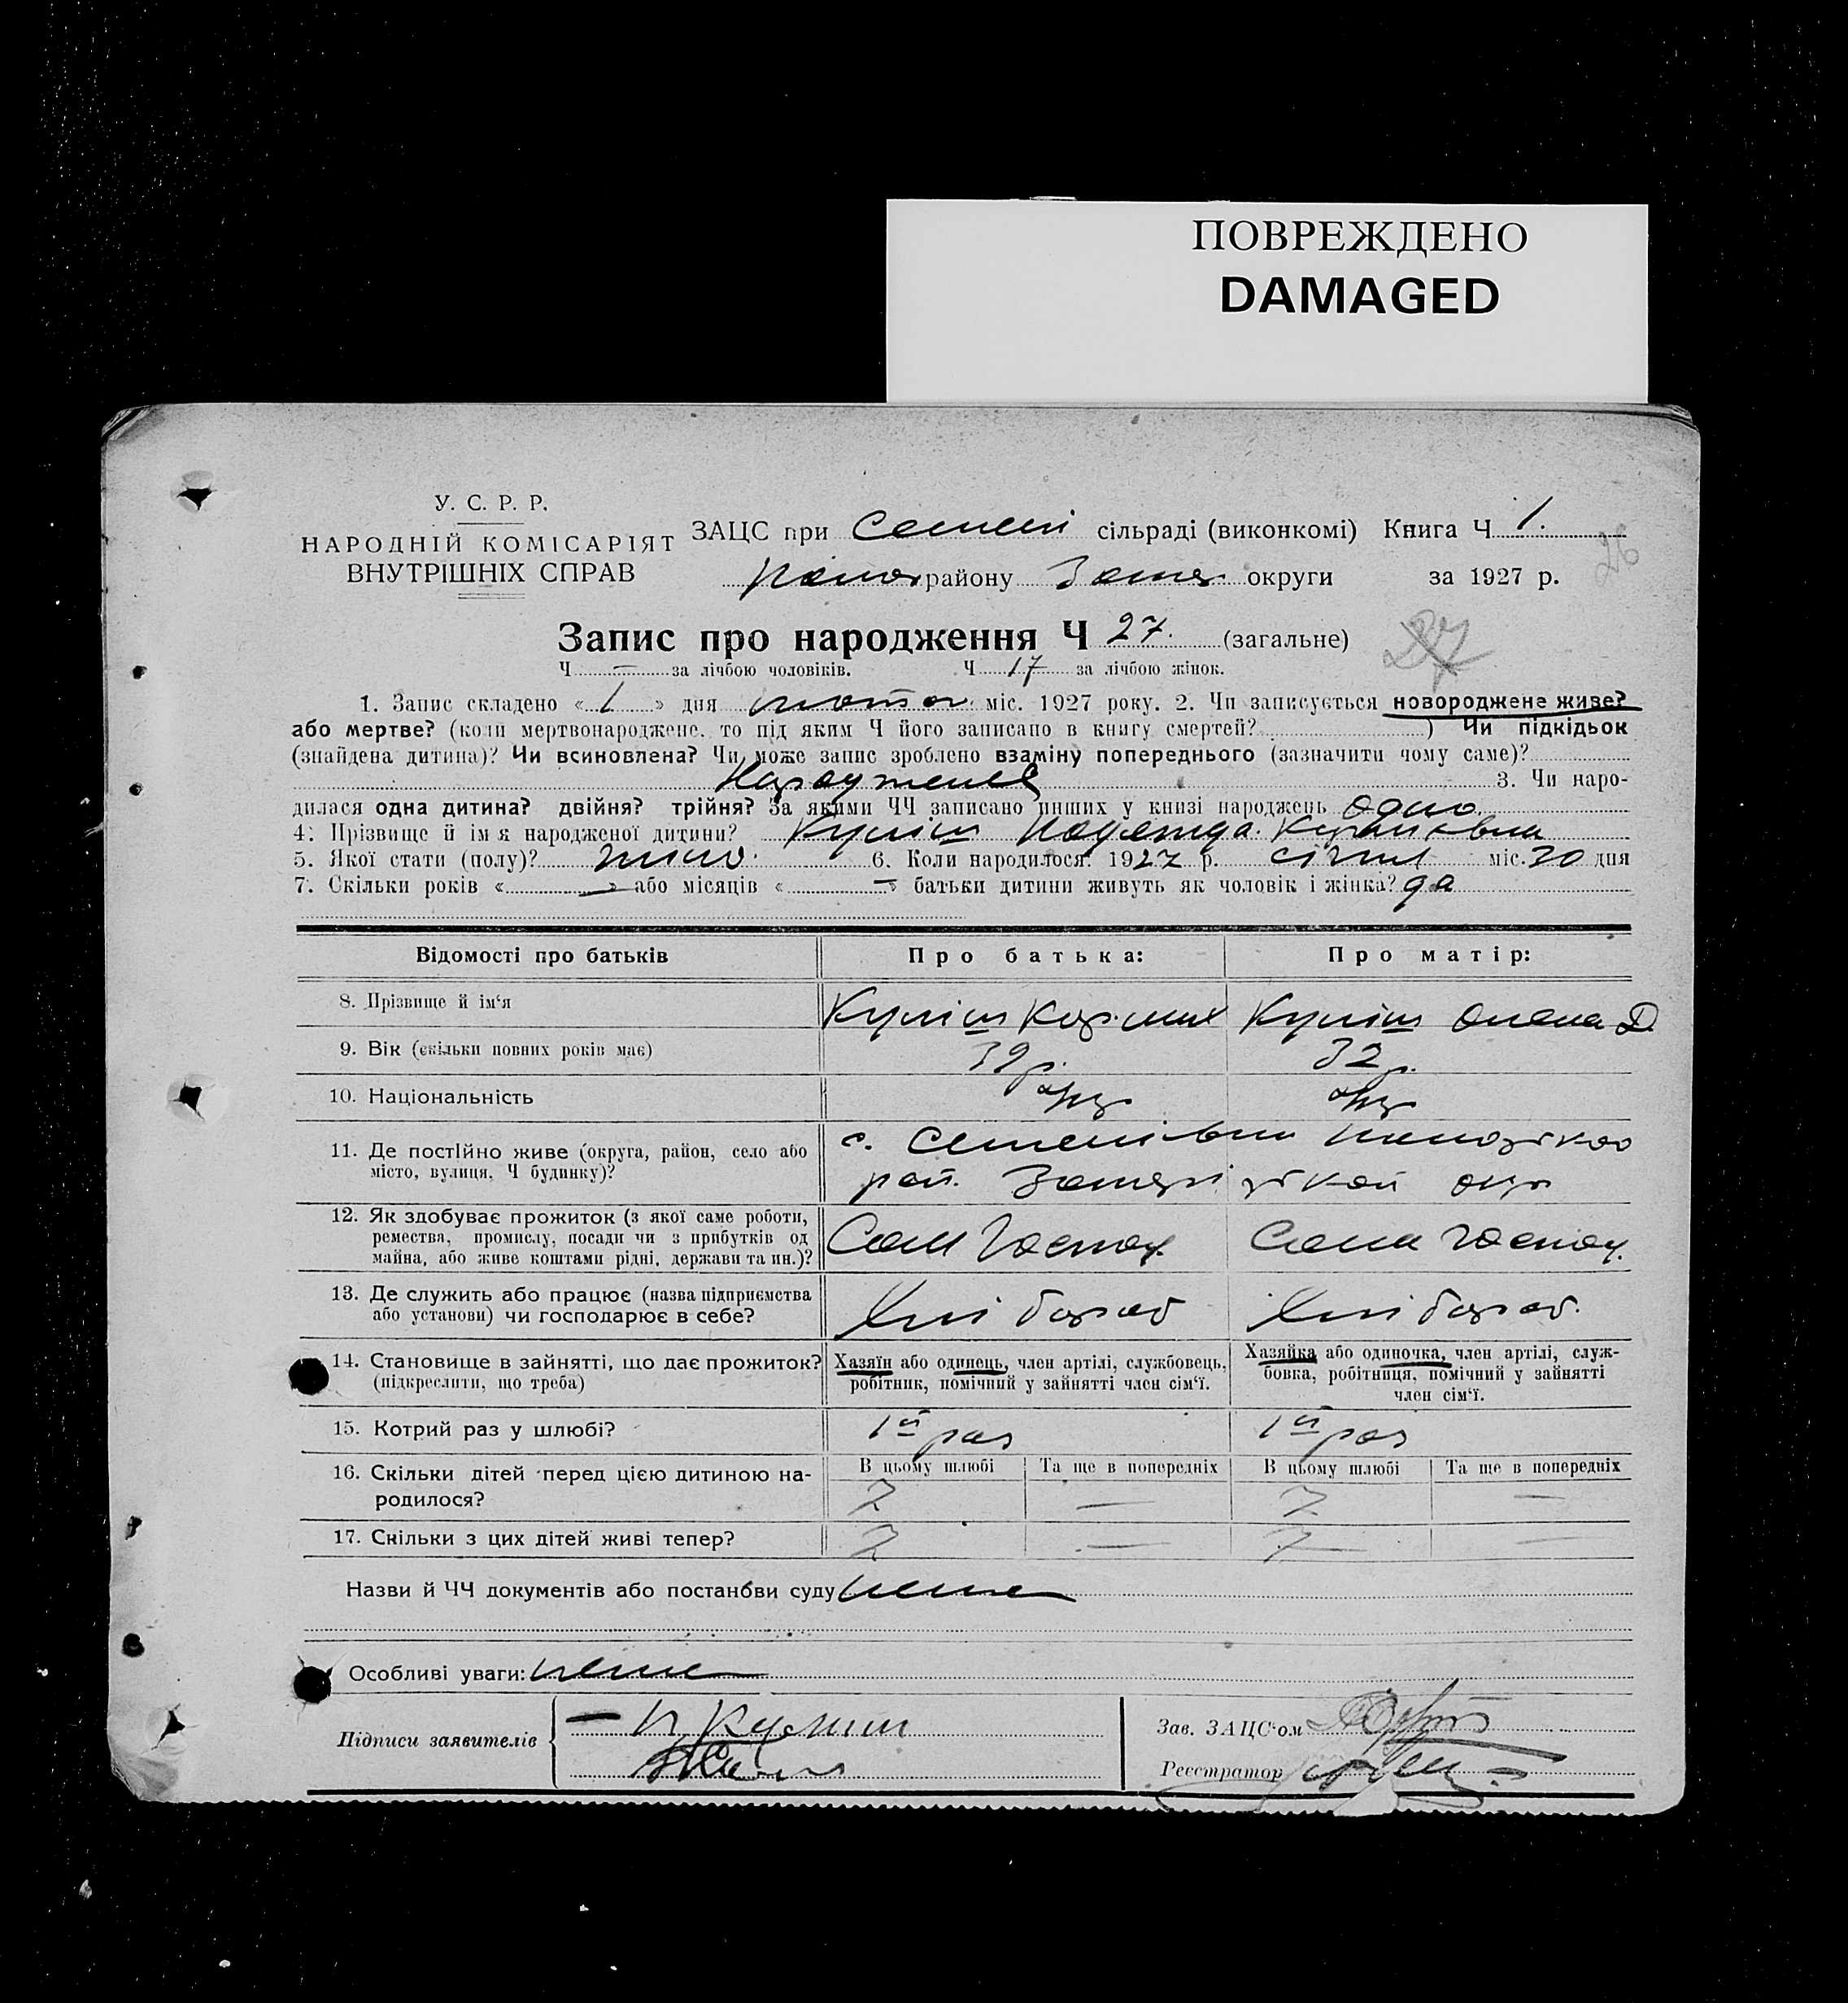 ПОВРЕЖДЕНО
DAMAGED
У. С. Р. Р.
НАРОДНІЙ КОМІСАРІЯТ
ВНУТРІШНІХ СПРАВ
ЗАЦС при сільраді (виконкомі) Книга Ч 1.
26
району округи за 1927 р.
Запис про народження Ч 27. (загальне)
27
Ч — за лічбою чоловіків. Ч 17 за лічбою жінок.
1. Запис складено « 1 » дня міс. 1927 року. 2. Чи записується новороджене живе?
або мертве? (коли мертвонароджене, то під яким Ч його записано в книгу смертей? ) Чи підкідьок
(знайдена дитина)? Чи всиновлена? Чи може запис зроблено взаміну попереднього (зазначити чому саме)?
3. Чи наро-
дилася одна дитина? двійня? трійня? За якими ЧЧ записано инших у книзі народжень одно
4. Прізвище й ім'я народженої дитини? Куліш Надежда
5. Якої стати (полу)? жіно. 6. Коли народилося? 1927 р. січня міс. 30 дня
7. Скільки років « — » або місяців « — » батьки дитини живуть як чоловік і жінка? да
Відомості про батьків Про батька: Про матір:
8. Прізвище й ім'я Куліш Куліш Олена Д
9. Вік (скільки повних років має) 39 р. 32 р.
10. Національність укр укр
11. Де постійно живе (округа, район, село або
місто, вулиця, Ч будинку)?
с. Семенівка
рай. окр
12. Як здобуває прожиток (з якої саме роботи,
ремества, промислу, посади чи з прибутків од
майна, або живе коштами рідні, держави та ин.)?
Сам господ. Сама господ.
13. Де служить або працює (назва підприємства
або установи) чи господарює в себе?
Хлібороб Хлібороб.
14. Становище в зайнятті, що дає прожиток?
(підкреслити, що треба)
Хазяїн або одинець, член артілі, службовець,
робітник, помічний у зайнятті член сім'ї.
Хазяйка або одиночка, член артілі, служ-
бовка, робітниця, помічний у зайнятті
член сім'ї.
15. Котрий раз у шлюбі? 1й раз 1й раз
16. Скільки дітей перед цією дитиною на-
родилося?
В цьому шлюбі Та ще в попередніх В цьому шлюбі Та ще в попередніх
7 — 7 —
17. Скільки з цих дітей живі тепер? 7 — 7 —
Назви й ЧЧ документів або постанови суду нема
Особливі уваги: нема
Підписи заявителів
Зав. ЗАЦС'ом
Реєстратор